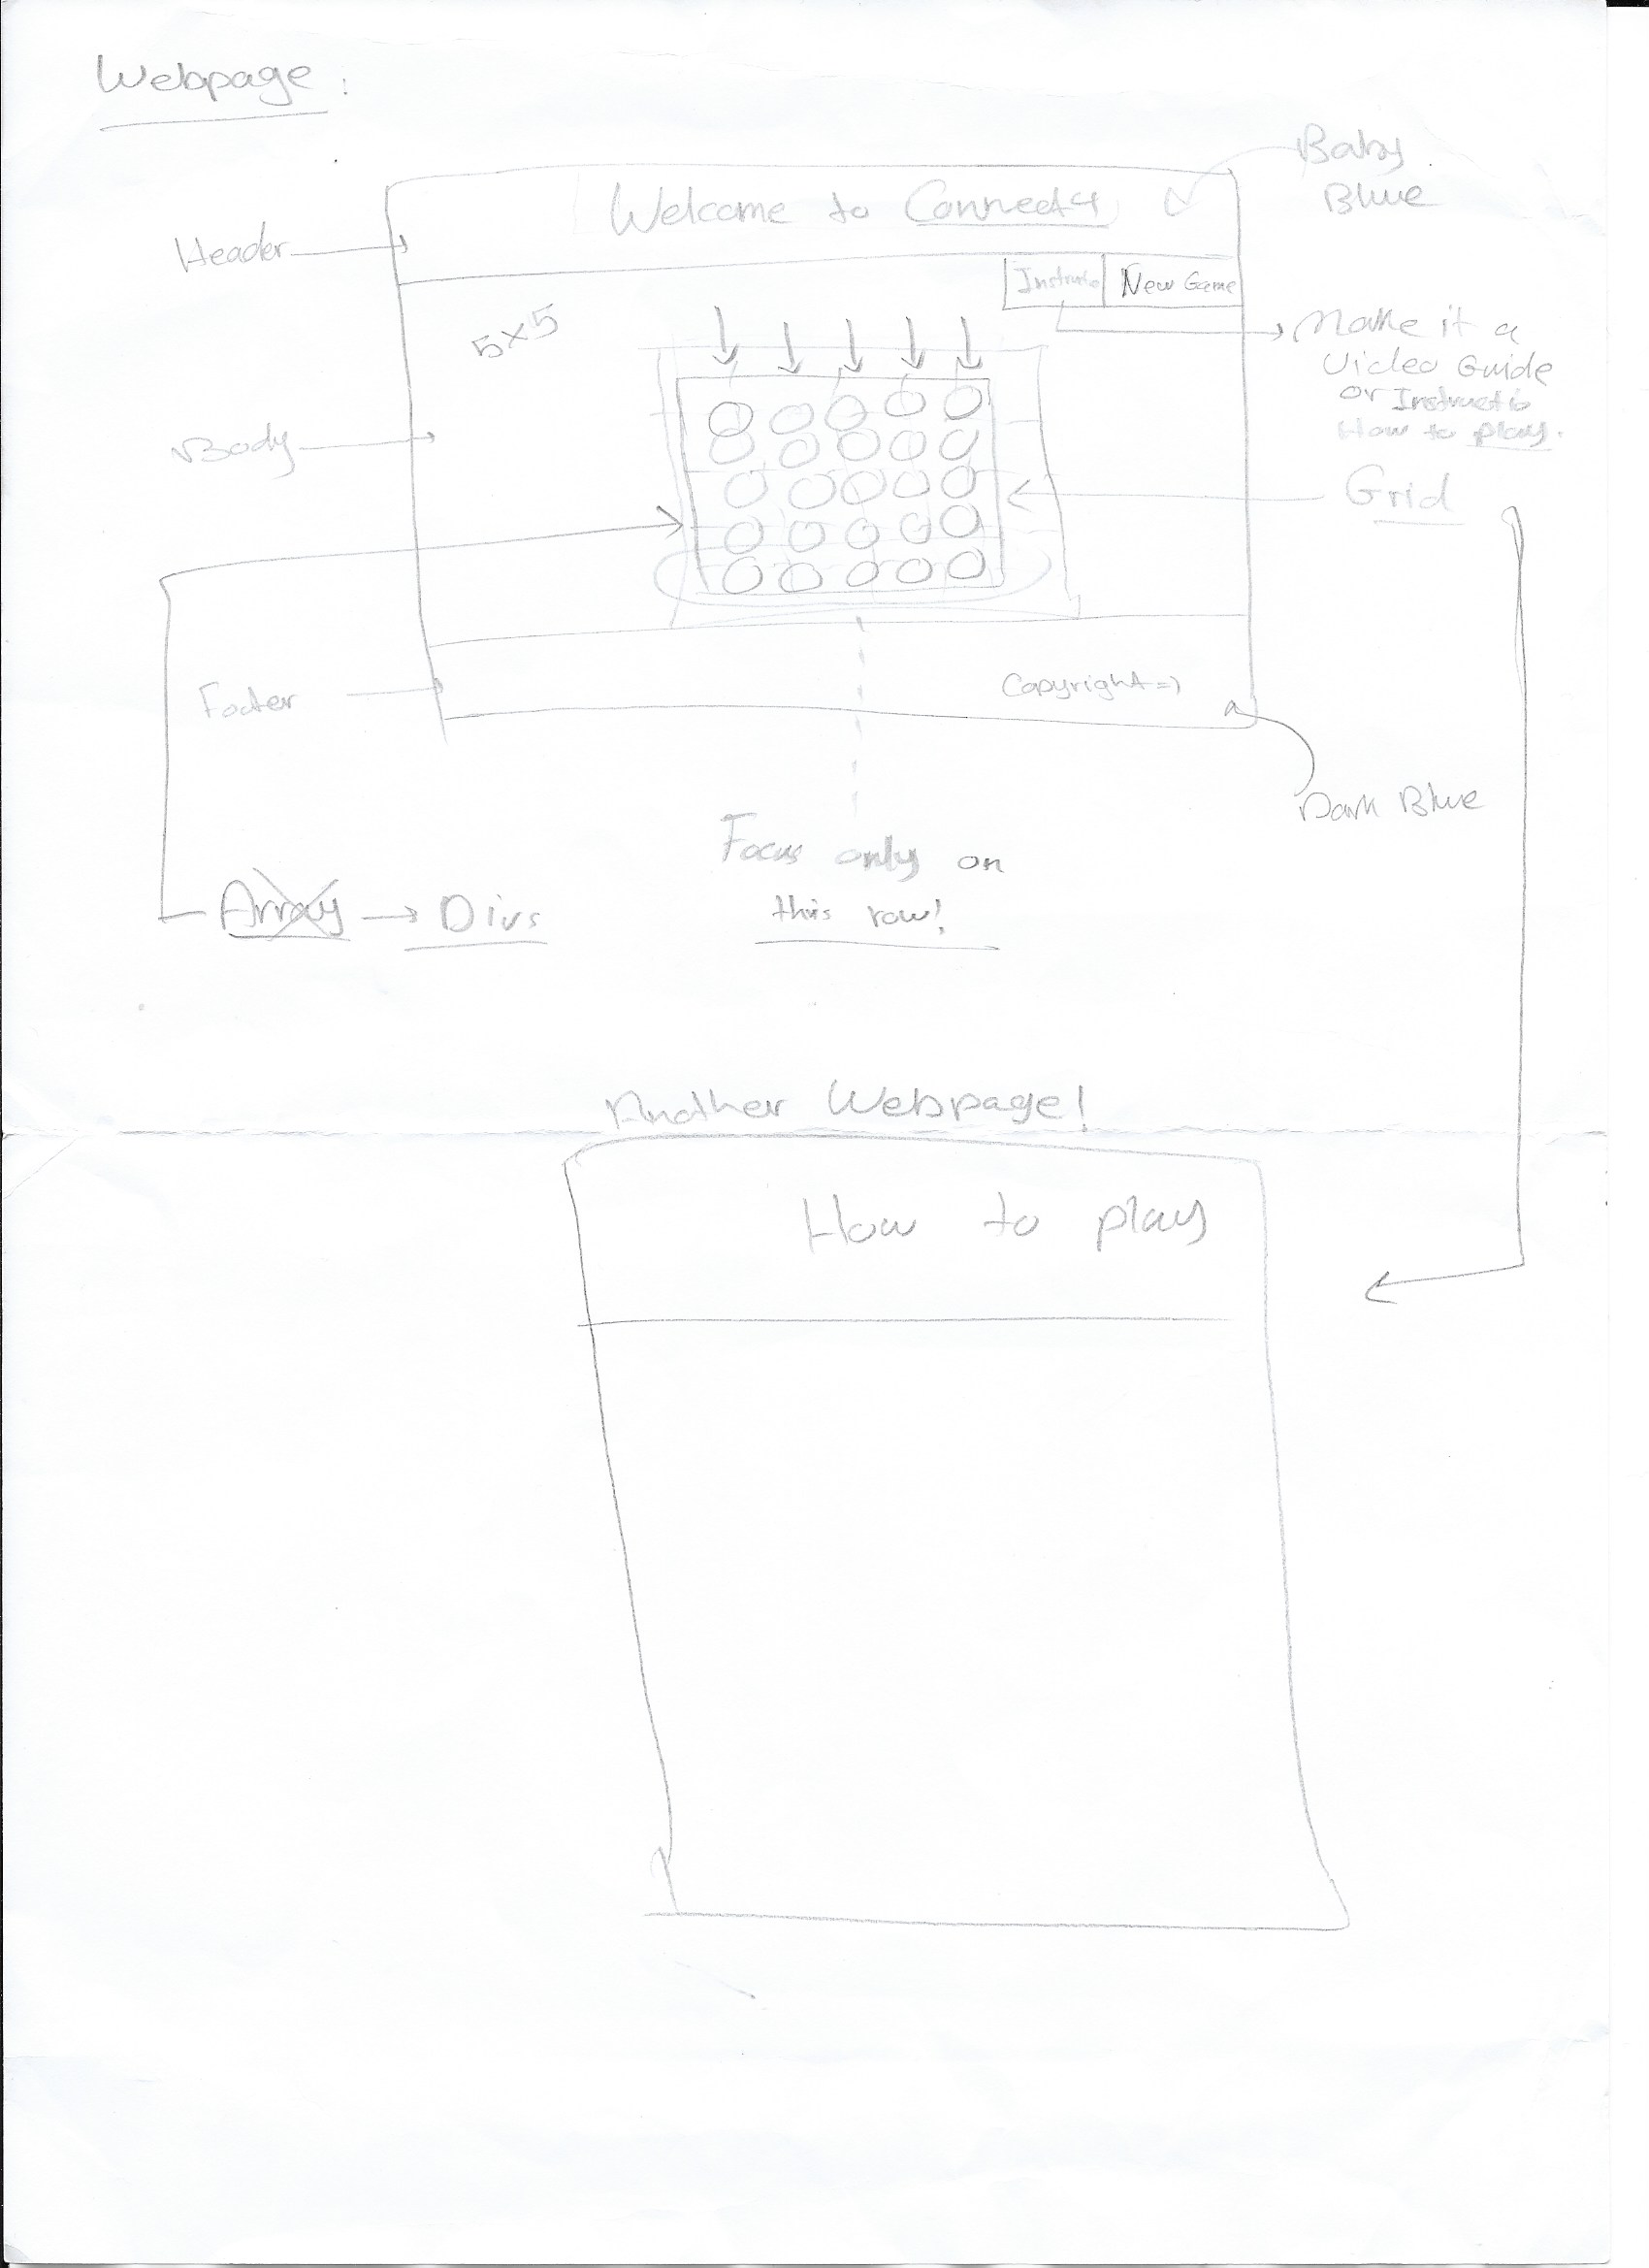 Webpage :
Baby
Blue
Welcome to Connect4
Header
Instructio
New Game
5x5
Make it a
Video Guide
or Instructio
How to play.
Body
Grid
Footer
Copyright =)
Dark Blue
Focus only on
this row!
Array → Divs
Another Webpage!
How to play